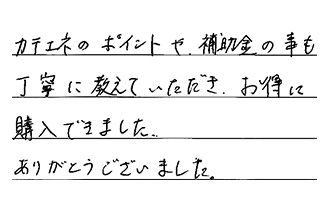 カテエネのポイントや、補助金の事も
丁寧に教えていただき、お得に
購入できました。
ありがとうございました。